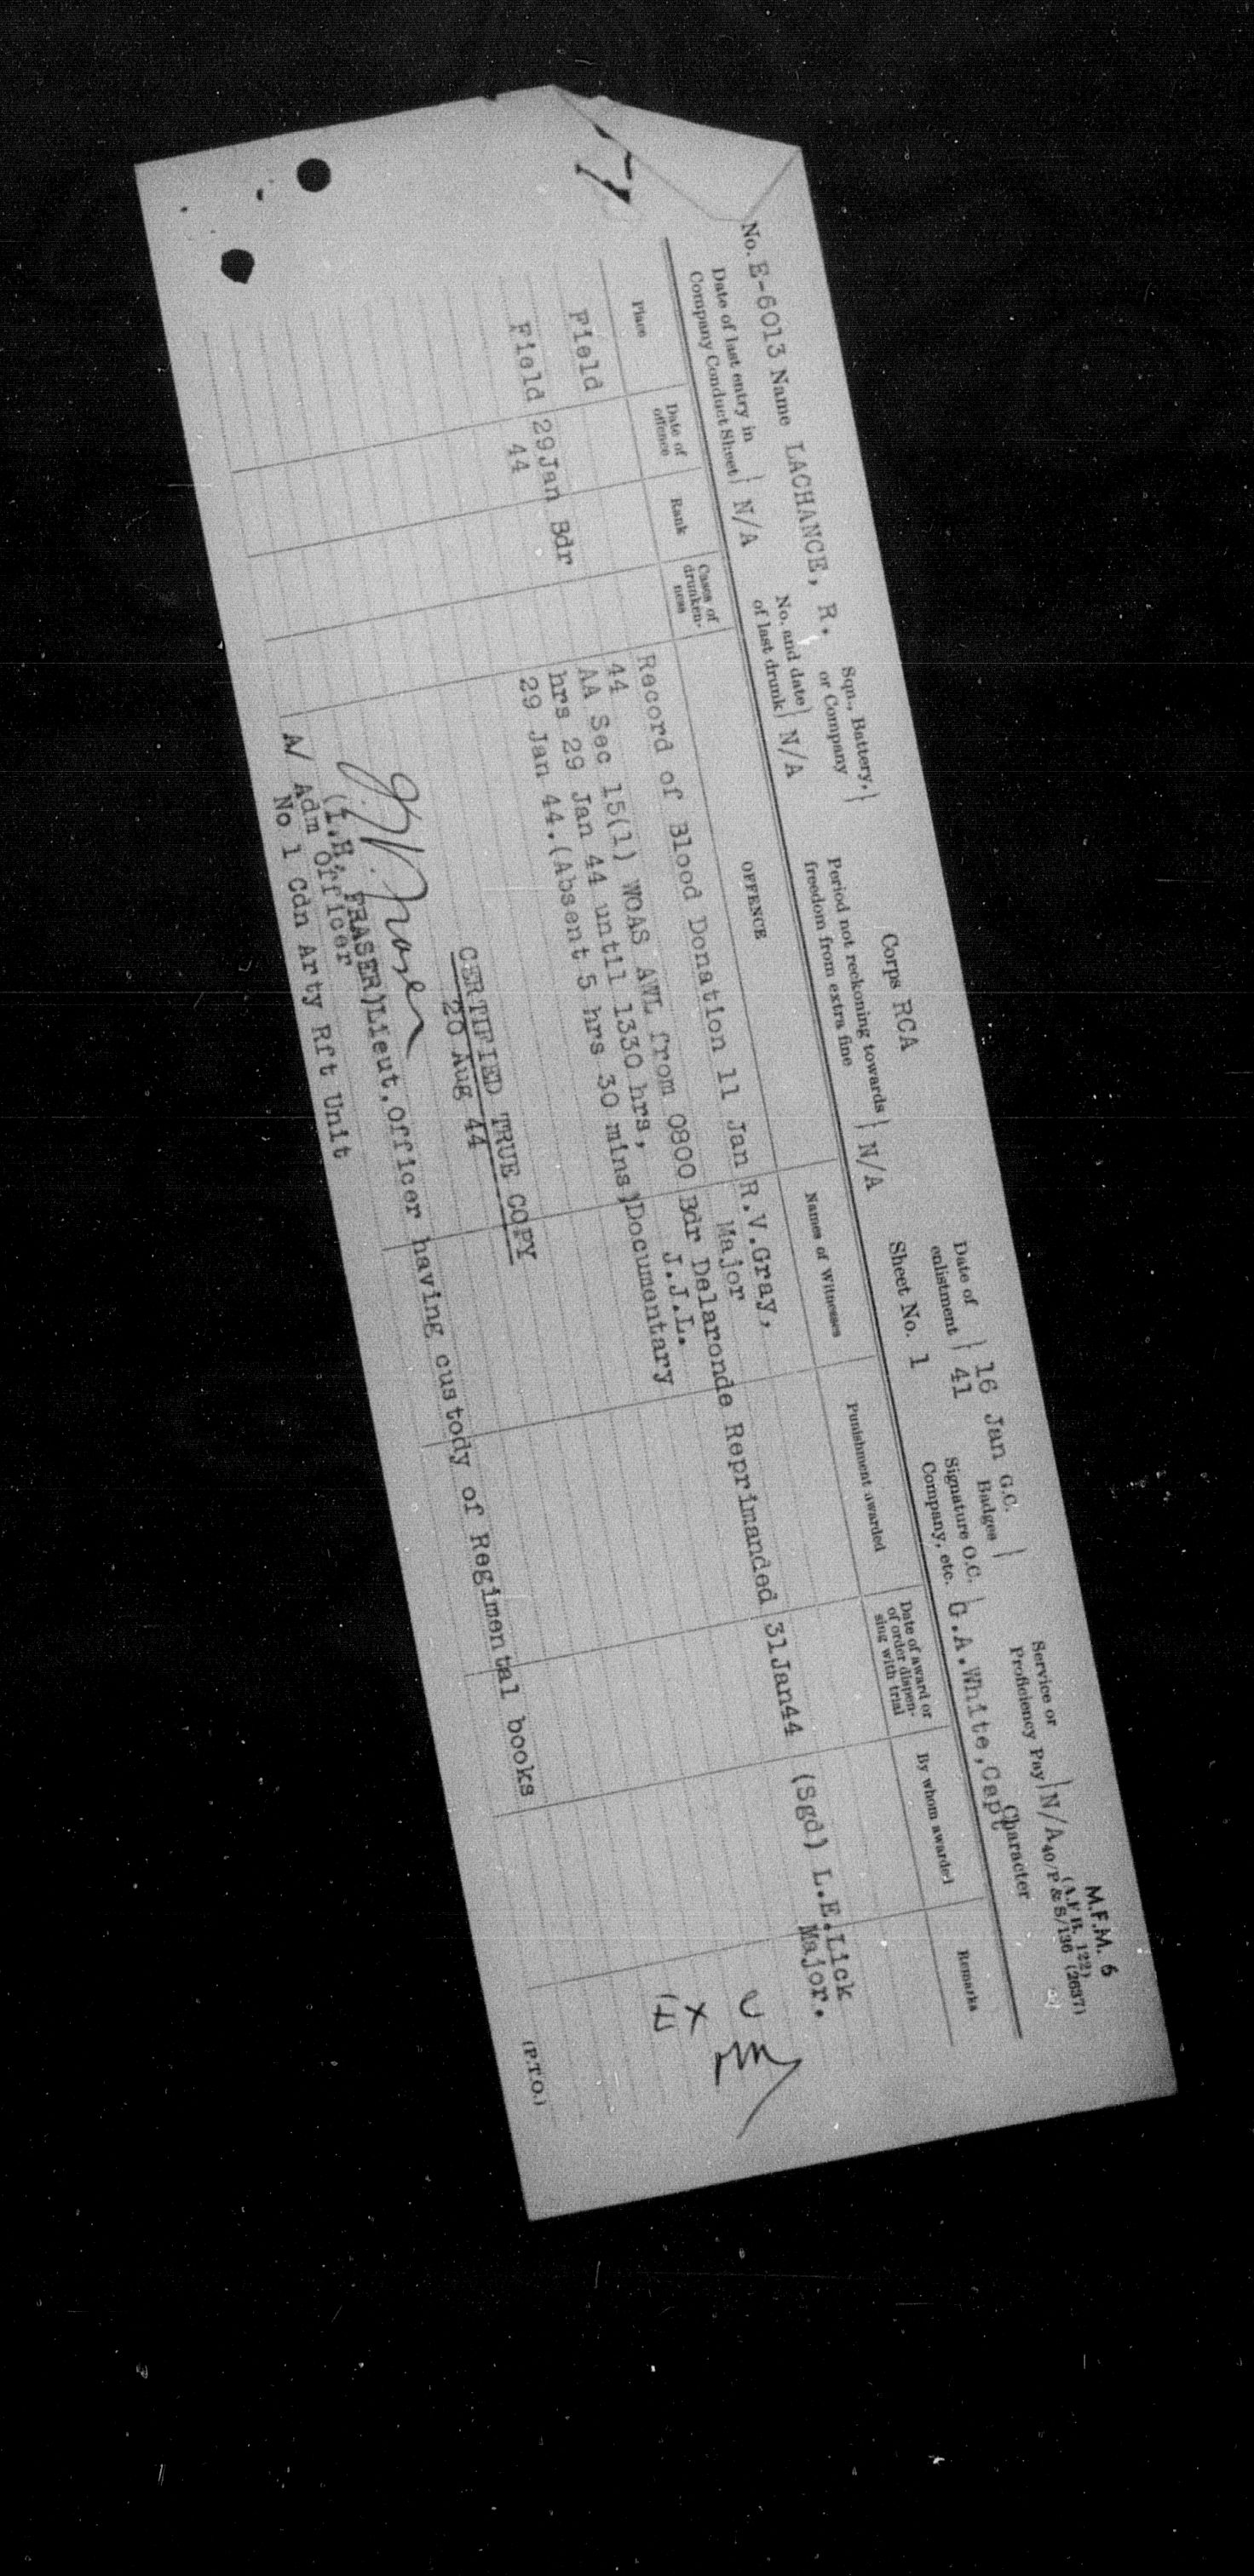 M.F.M. 6
(A.F.B. 122)
40/P & S/136 (2637)
No. E-6013 Name LACHANCE, R. Sqn., Battery, or Company Corps RCA Date of enlistment 16 Jan 41 G.C. Badges Service or Proficiency Pay N/A
Date of last entry in Company Conduct Sheet N/A No. and date of last drunk N/A Period not reckoning towards freedom from extra fine N/A Sheet No. 1 Signature O.C. Company, etc. G.A.White,Capt Character
Place Date of offence Rank Cases of drunkenness OFFENCE Names of Witnesses Punishment awarded Date of award or of order dispensing with trial By whom awarded Remarks
Field Record of Blood Donation 11 Jan R.V.Gray,
44 Major
Field 29Jan Bdr AA Sec 15(1) WOAS AWL from 0800 Bdr Delaronde Reprimanded 31Jan44 (Sgd) L.E.Lick
44 hrs 29 Jan 44 until 1330 hrs, J.J.L. Major.
29 Jan 44.(Absent 5 hrs 30 mins)Documentary
CERTIFIED TRUE COPY
20 Aug 44
(I.H. FRASER)Lieut.Officer having custody of Regimental books
A/ Adm Officer
No 1 Cdn Arty Rft Unit
(P.T.O.)